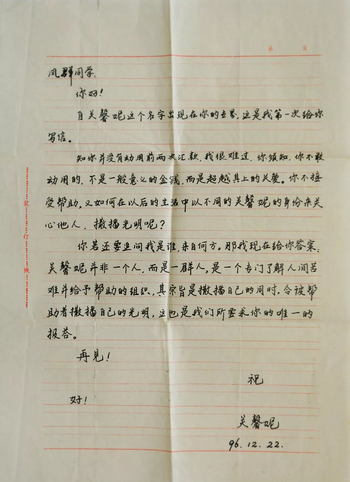 凤群同学:
你好!
自关馨妮这个名字出现在你的世界,这是我第一次给你
写信。
知你并没有动用前两次汇款,我很难过。你须知,你不敢
动用的,不是一般意义的金钱,而是超越其上的关爱。你不接
受帮助,又如何在以后的生活中以不同的关馨妮的身份来关
心他人、撒播光明呢?
你若还要追问我是谁,来自何方。那我现在给你答案:
关馨妮并非一个人,而是一群人,是一个专门了解人间苦
难并给予帮助的组织,其宗旨是撒播自己的同时,令被帮
助者撒播自己的光明。这也是我们所要求你的唯一的
报答。
再见!
祝
好!
关馨妮
96.12.22.
装订线